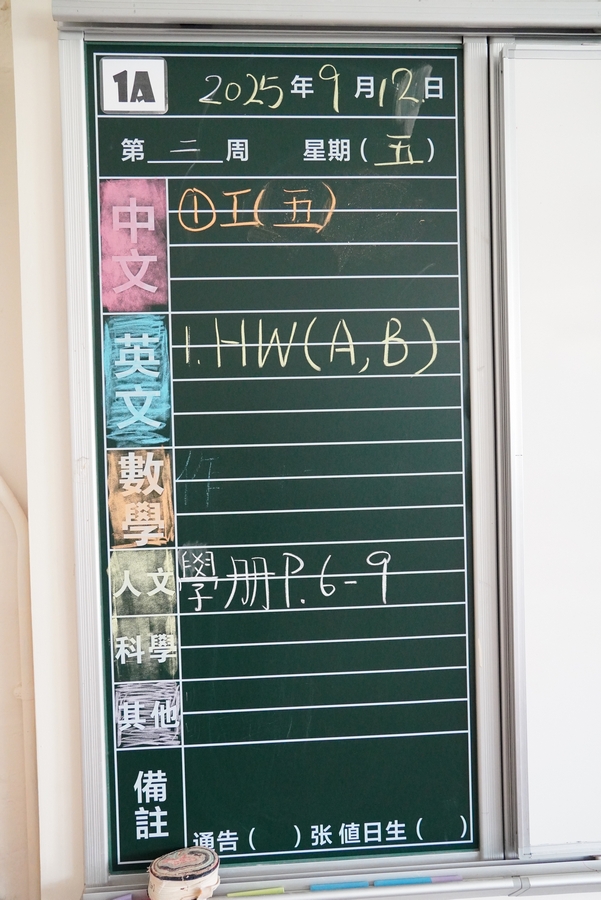 1A 2025年9月12日
第二周 星期(五)
中文 ①工(五)
英文 1. HW(A,B)
數學 作
人文 學册P.6-9
科學
其他
備註
通告( )张 值日生( )